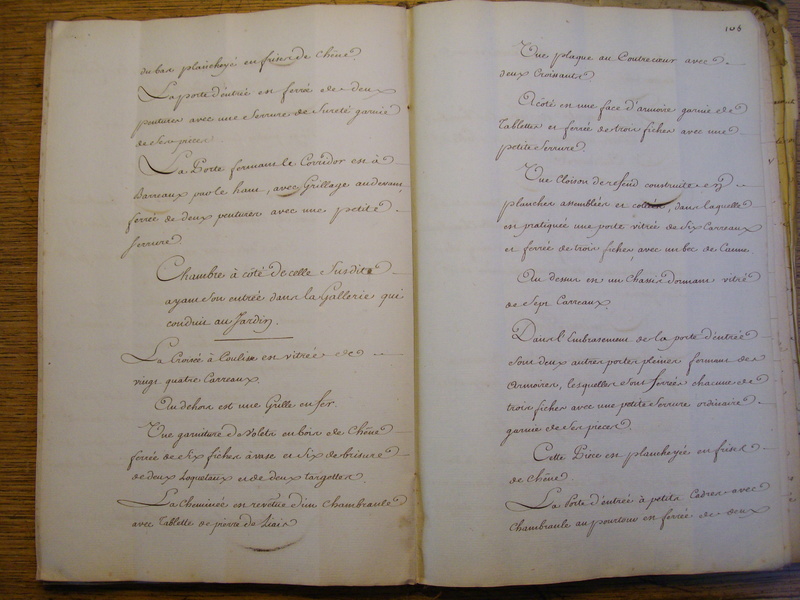 du bas planchoyé en frises de Chêne
La porte d'entrée est ferrée de deux
pentures avec une Serrure de Sureté garnie
de Ses pieces
La Porte formant le Corridor est à
Barreaux par le haut, avec Grillage au devant,
ferrée de deux pentures avec une petite
Serrure
Chambre à côté de celle Susdite
ayant Son entrée dans la Gallerie qui
conduit au Jardin.
La Croisée à Coulisse est vitrée de
vingt quatre Carreaux.
Au dehors est une Grille en fer.
Une garniture de Volets en bois de Chêne
ferrée de Six fiches à vase et Six de brisure
de deux Loqueteaux et de deux targettes.
La cheminée est revêtue d'un Chambranle
avec Tablette de pierre de Liais
106
Une plaque au Contrecœur avec
deux Croissants
A côté est une face d'armoire garnie de
Tablettes et ferrée de trois fiches avec une
petite Serrure.
Une Cloison de refend construite en
planches assemblées et collées, dans laquelle
est pratiquée une porte vitrée de Six Carreaux
et ferrée de trois fiches, avec un bec de Canne.
Au dessus est un Chassis dormant vitré
de Sept Carreaux.
Dans l'Embrasement de la porte d'entrée
Sont deux autres portes pleines formant des
Armoires, lesquelles Sont ferrées chacune de
trois fiches avec une petite Serrure ordinaire
garnie de Ses pieces.
Cette Pièce est planchoyée en frises
de chêne
La Porte d'entrée à petits Cadres avec
Chambranle au pourtour est ferrée de deux